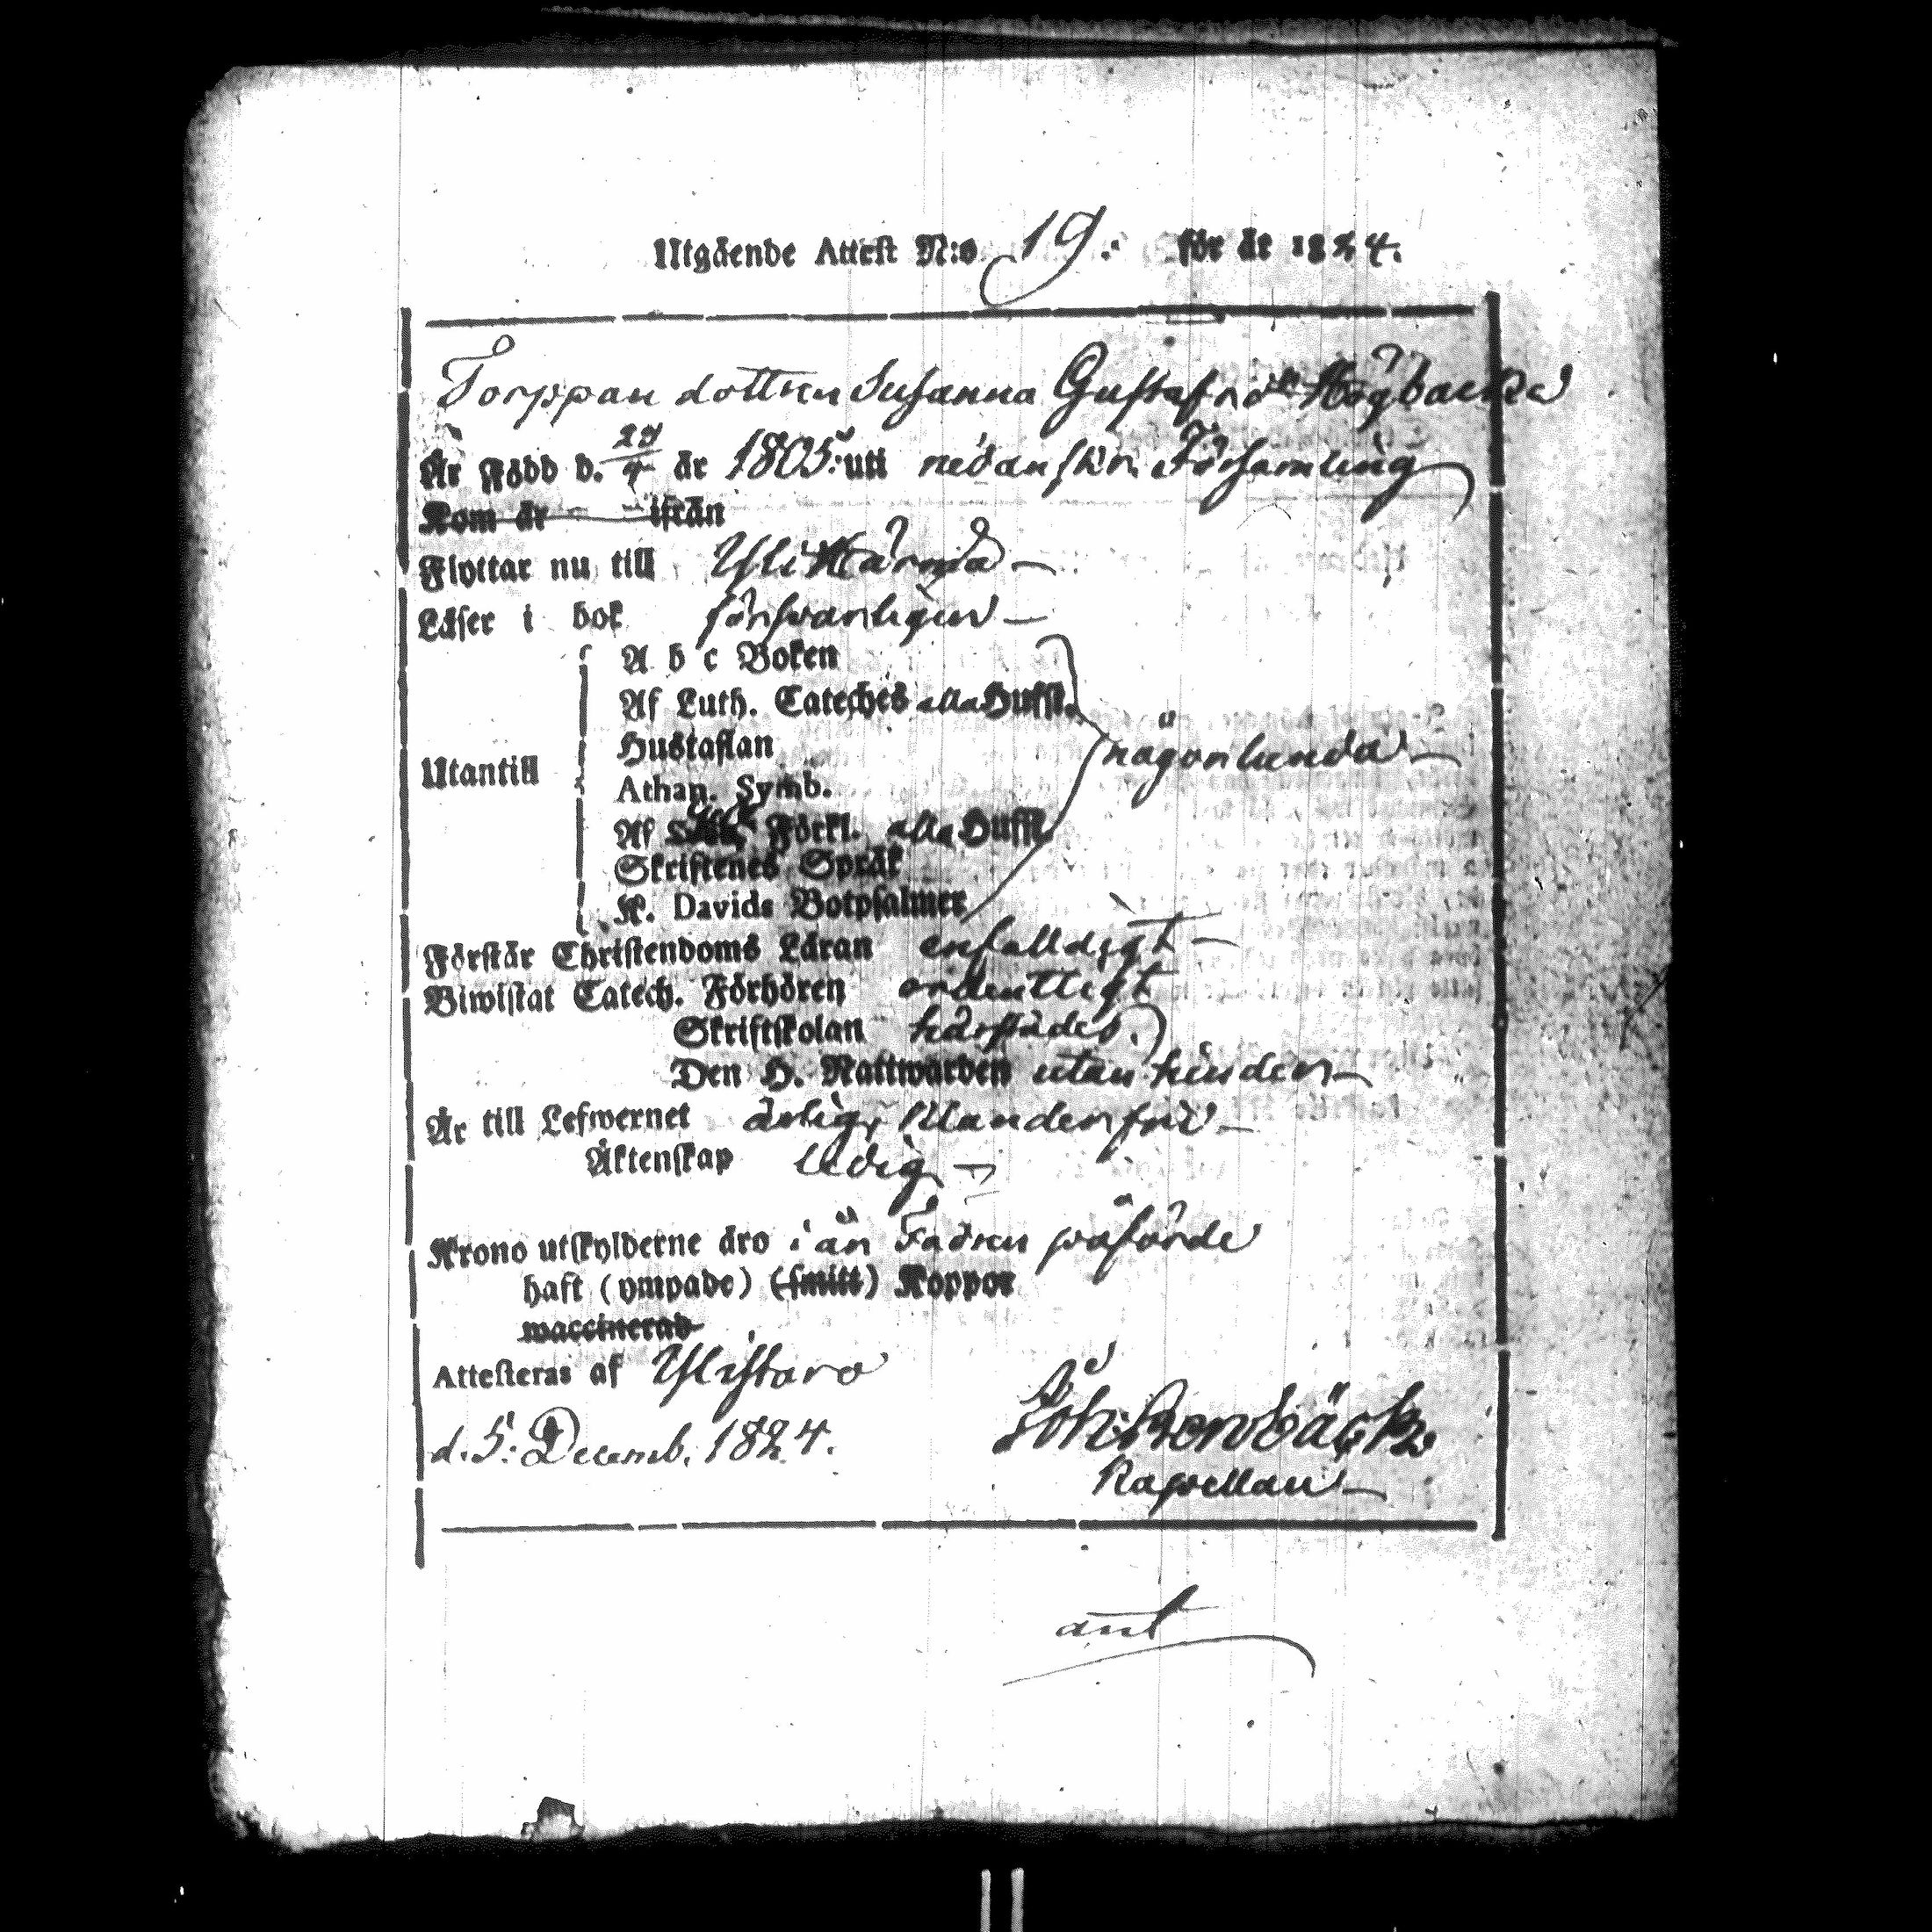 Utgående Attest N:o 19. för år 1824.
Torppan dottren Susanna Gustafsd:r Högbacka
Är Född d. 29/4 år 1805. uti nedanskr. Församling
Kom år ifrån
Flyttar nu till Yli Härmä
Läser i bok försvarligen
A b c Boken
Af Luth. Cateches alla Hufst.
Hustaflan
Utantill någonlunda
Athan. Symb.
Af Förkl. alla Hufst.
Skriftenes Språk
K. Davids Botpsalmer
Förstår Christendoms Läran enfalldigt
Biwistat Catech. Förhören ordentligt
Skriftskolan härstädes.
Den H. Nattwarden utan hinder
Är till Lefwernet ärlig, klanderfri
Äktenskap ledig
Krono utskylderne äro i år Fadren påförde
haft (ympade) (smitt) Koppor
waccinerad
Attesteras af Ylistaro
d. 5. Decemb. 1824. Joh. Kernbäck
Kapellan
ant